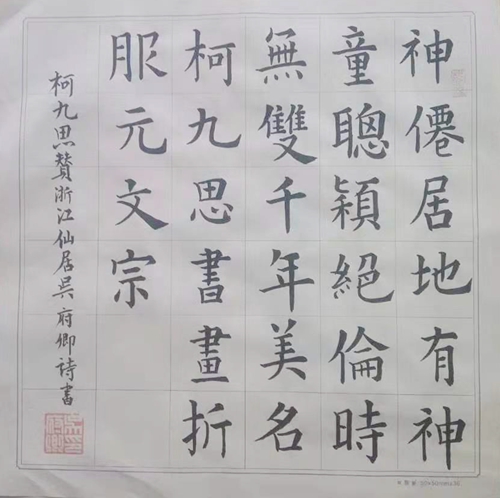 神僊居地有神
童聰穎絕倫時
無雙千年美名
柯九思書畫折
服元文宗
柯九思赞浙江仙居吴府卿诗書